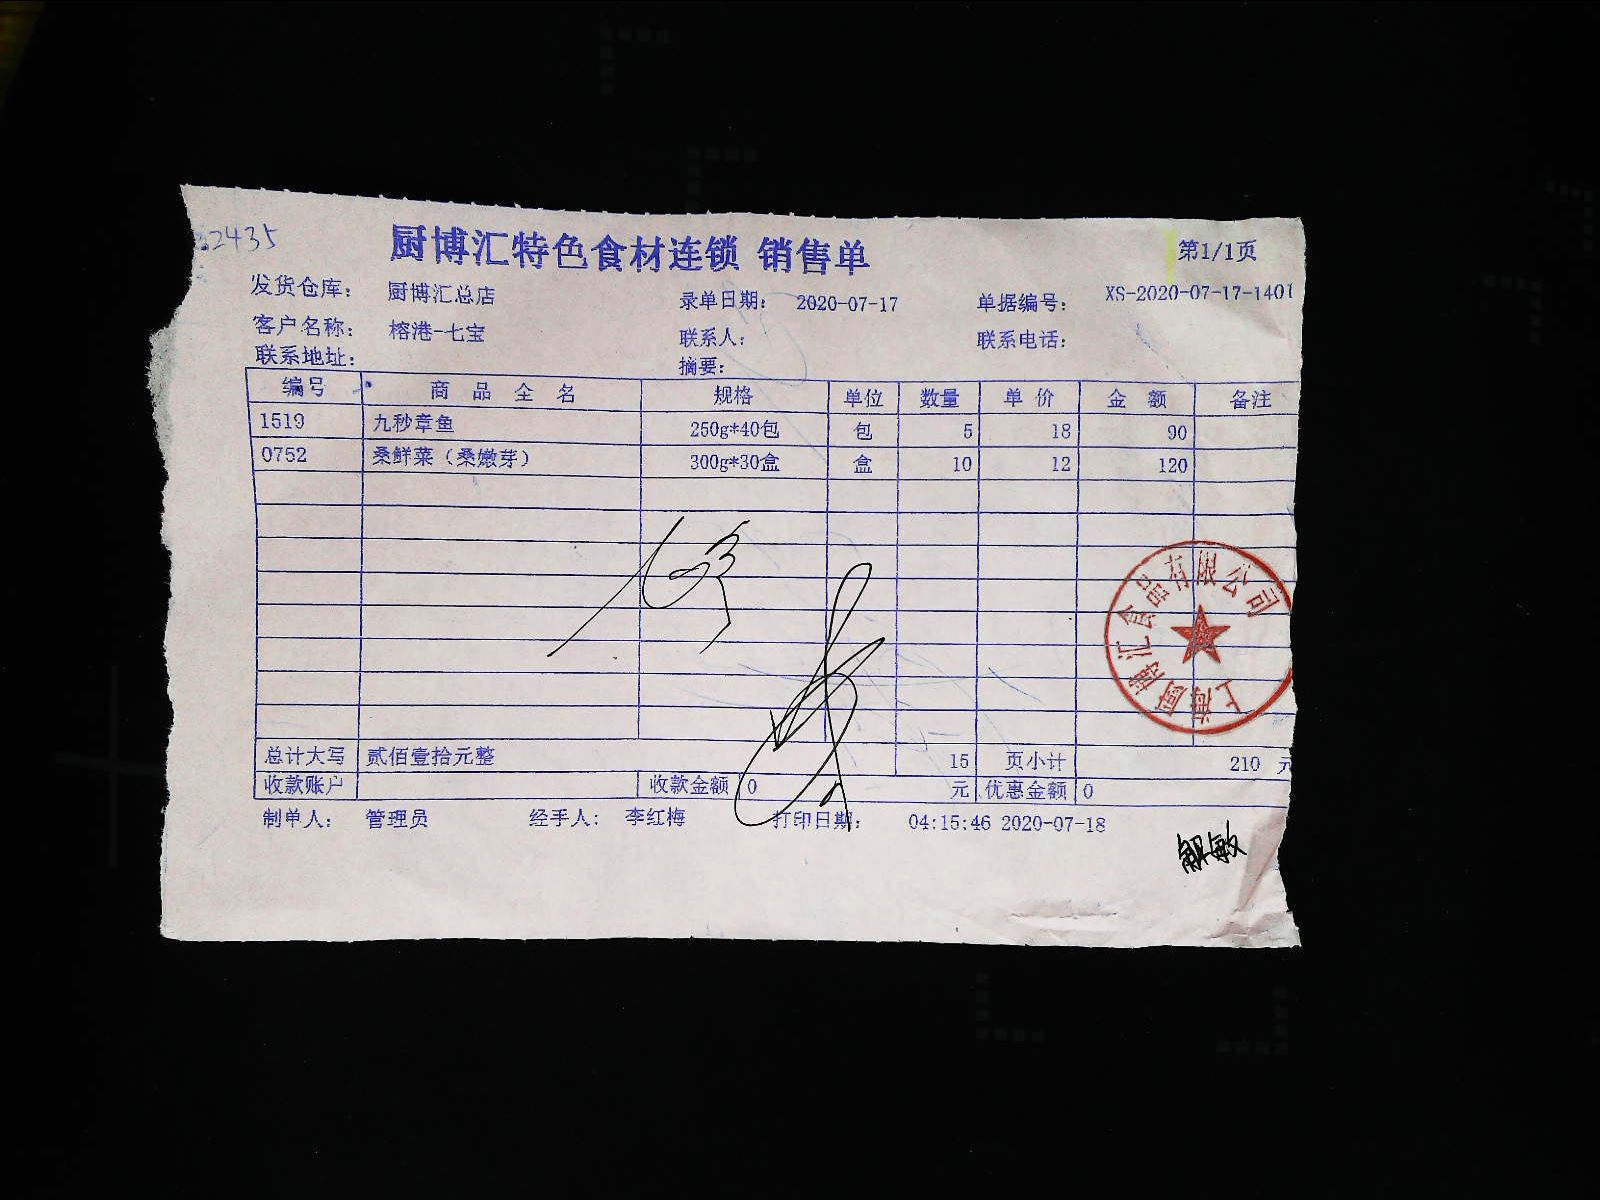 32435
厨博汇特色食材连锁 销售单
第1/1页
发货仓库： 厨博汇总店 录单日期： 2020-07-17 单据编号： XS-2020-07-17-1401
客户名称： 榕港-七宝 联系人： 联系电话：
联系地址： 摘要：
编号 商品全名 规格 单位 数量 单价 金额 备注
1519 九秒章鱼 250g*40包 包 5 18 90
0752 桑鲜菜（桑嫩芽） 300g*30盒 盒 10 12 120
上海厨博汇食品有限公司
总计大写 贰佰壹拾元整 15 页小计 210 元
收款账户 收款金额 0 元 优惠金额 0
制单人： 管理员 经手人： 李红梅 打印日期： 04:15:46 2020-07-18